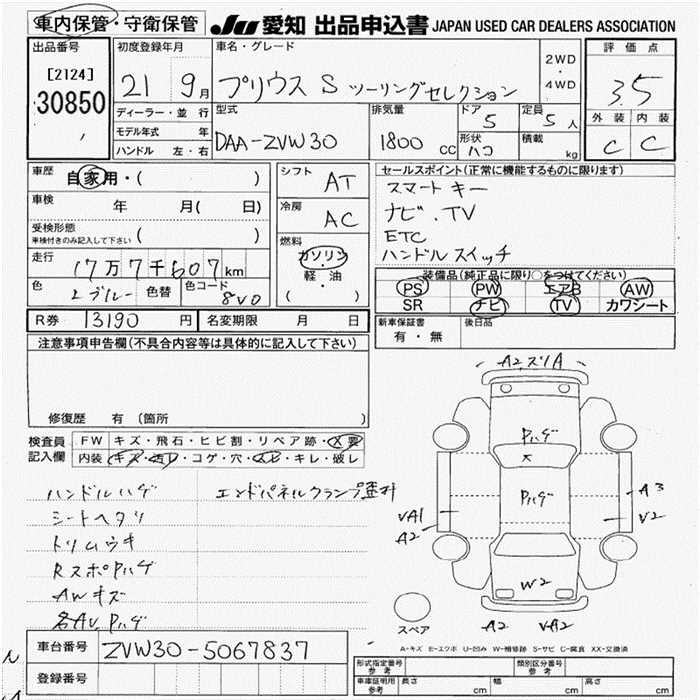 車内保管・守衛保管 JU 愛知 出品申込書 JAPAN USED CAR DEALERS ASSOCIATION
出品番号
[2124]
30850
初度登録年月
21 9月
車名・グレード
プリウス S ツーリングセレクション
2WD
・
4WD
評価点
3.5
外装 内装
C C
ディーラー・並行
モデル年式 年
ハンドル 左・右
型式
DAA-ZVW30
排気量
1800 CC
ドア
5
形状
ハコ
定員
5人
積載
kg
車歴
自家用・( )
車検 年 月( 日)
受検形態
車検付きのみ記入して下さい ( )
走行
17万7千607km
色
Lブルー 色替
色コード
8V0
シフト
AT
冷房
AC
燃料
ガソリン
・
軽・油
( )
セールスポイント(正常に機能するものに限ります)
スマートキー
ナビ.TV
ETC
ハンドルスイッチ
装備品(純品正に限り○をつけてください)
PS PW エアB AW
SR ナビ TV カワシート
R券 13190円 名変期限 月 日
新車保証書
有・無
後日品
注意事項申告欄(不具合内容等は具体的に記入して下さい)
修復歴 有(箇所 )
検査員
記入欄
FW キズ・飛石・ヒビ割・リペア跡・X要
内装 キズ・汚レ・コゲ・穴・スレ・キレ・破レ
ハンドルハゲ エンドパネルクランプ塗料
シートヘタリ
トリムウキ
RスポPハゲ
AWキズ
各AV.Pハゲ
A2,スリA
Pハゲ
X
Pハゲ
A3
V2
VA1
A2
W2
A2 VA2
スペア
A-キズ E-エクボ U-凹み W-補修跡 S-サビ C-腐食 XX-交換済
車台番号 ZVW30-5067837
登録番号
形式指定番号
参考
類別区分番号
参考
車庫証明用
参考
長さ cm 幅 cm 高さ cm